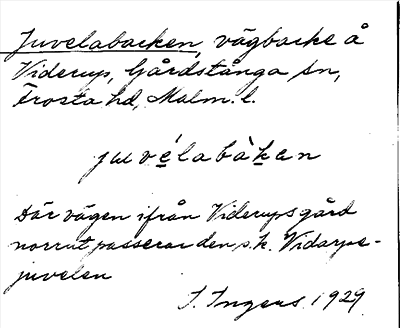 Juvelabacken, vägbacke å
Viderup, Gårdstånga sn,
Frosta hd, Malm. l.
juvélabàkan
Där vägen ifrån Viderupsgård
norrut passerar den s.k. Vidarps-
juvelen
I. Ingers 1929.